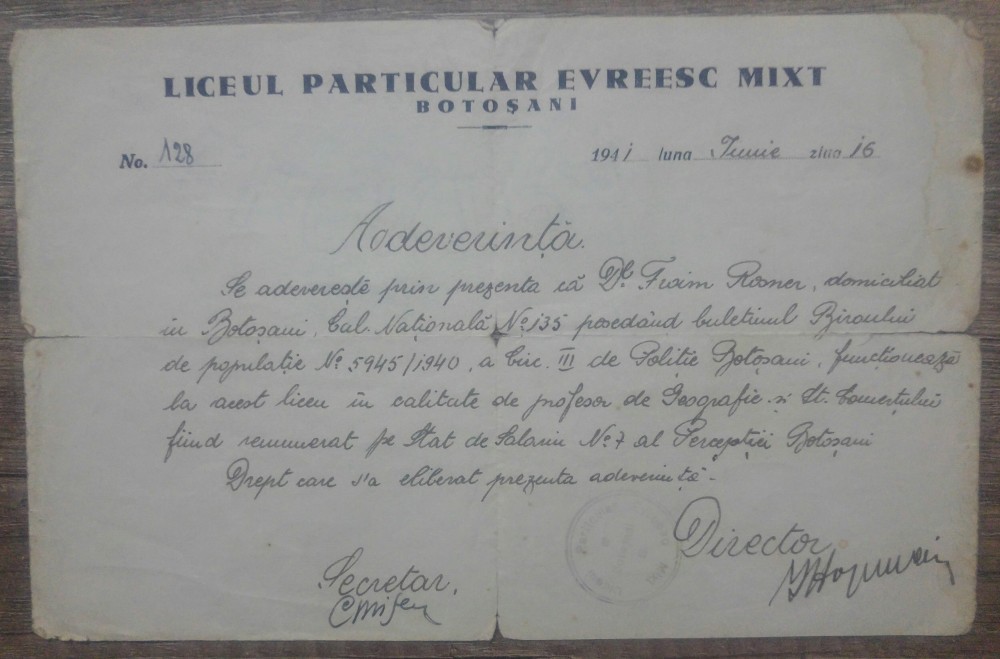 LICEUL PARTICULAR EVREESC MIXT
BOTOȘANI
No. 128
1941 luna Iunie ziua 16
Adeverință.
Se adeverește prin prezenta că Dl. Froim Rosner, domiciliat
în Botoșani, Cal. Națională No 135 posedând buletinul Biroului
de populație No. 5945/1940, a Circ. III de Poliție Botoșani, funcționează
la acest liceu în calitate de profesor de Geografie și St. Comerțului
fiind remunerat pe Stat de Salarii No. 7 al Percepției Botoșani
Drept care s'a eliberat prezenta adeverință.
Director,
Secretar,